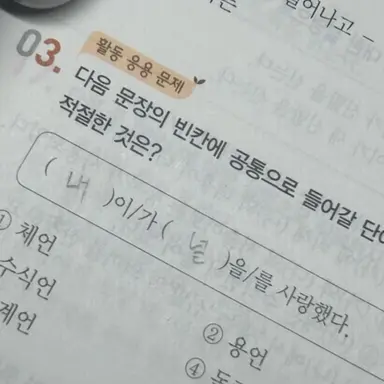 어나고 -
03.
활동 응용 문제
다음 문장의 빈칸에 공통으로 들어갈 단어
적절한 것은?
( 내 )이/가 ( 널 )을/를 사랑했다.
① 체언
② 용언
수식언
④
계언